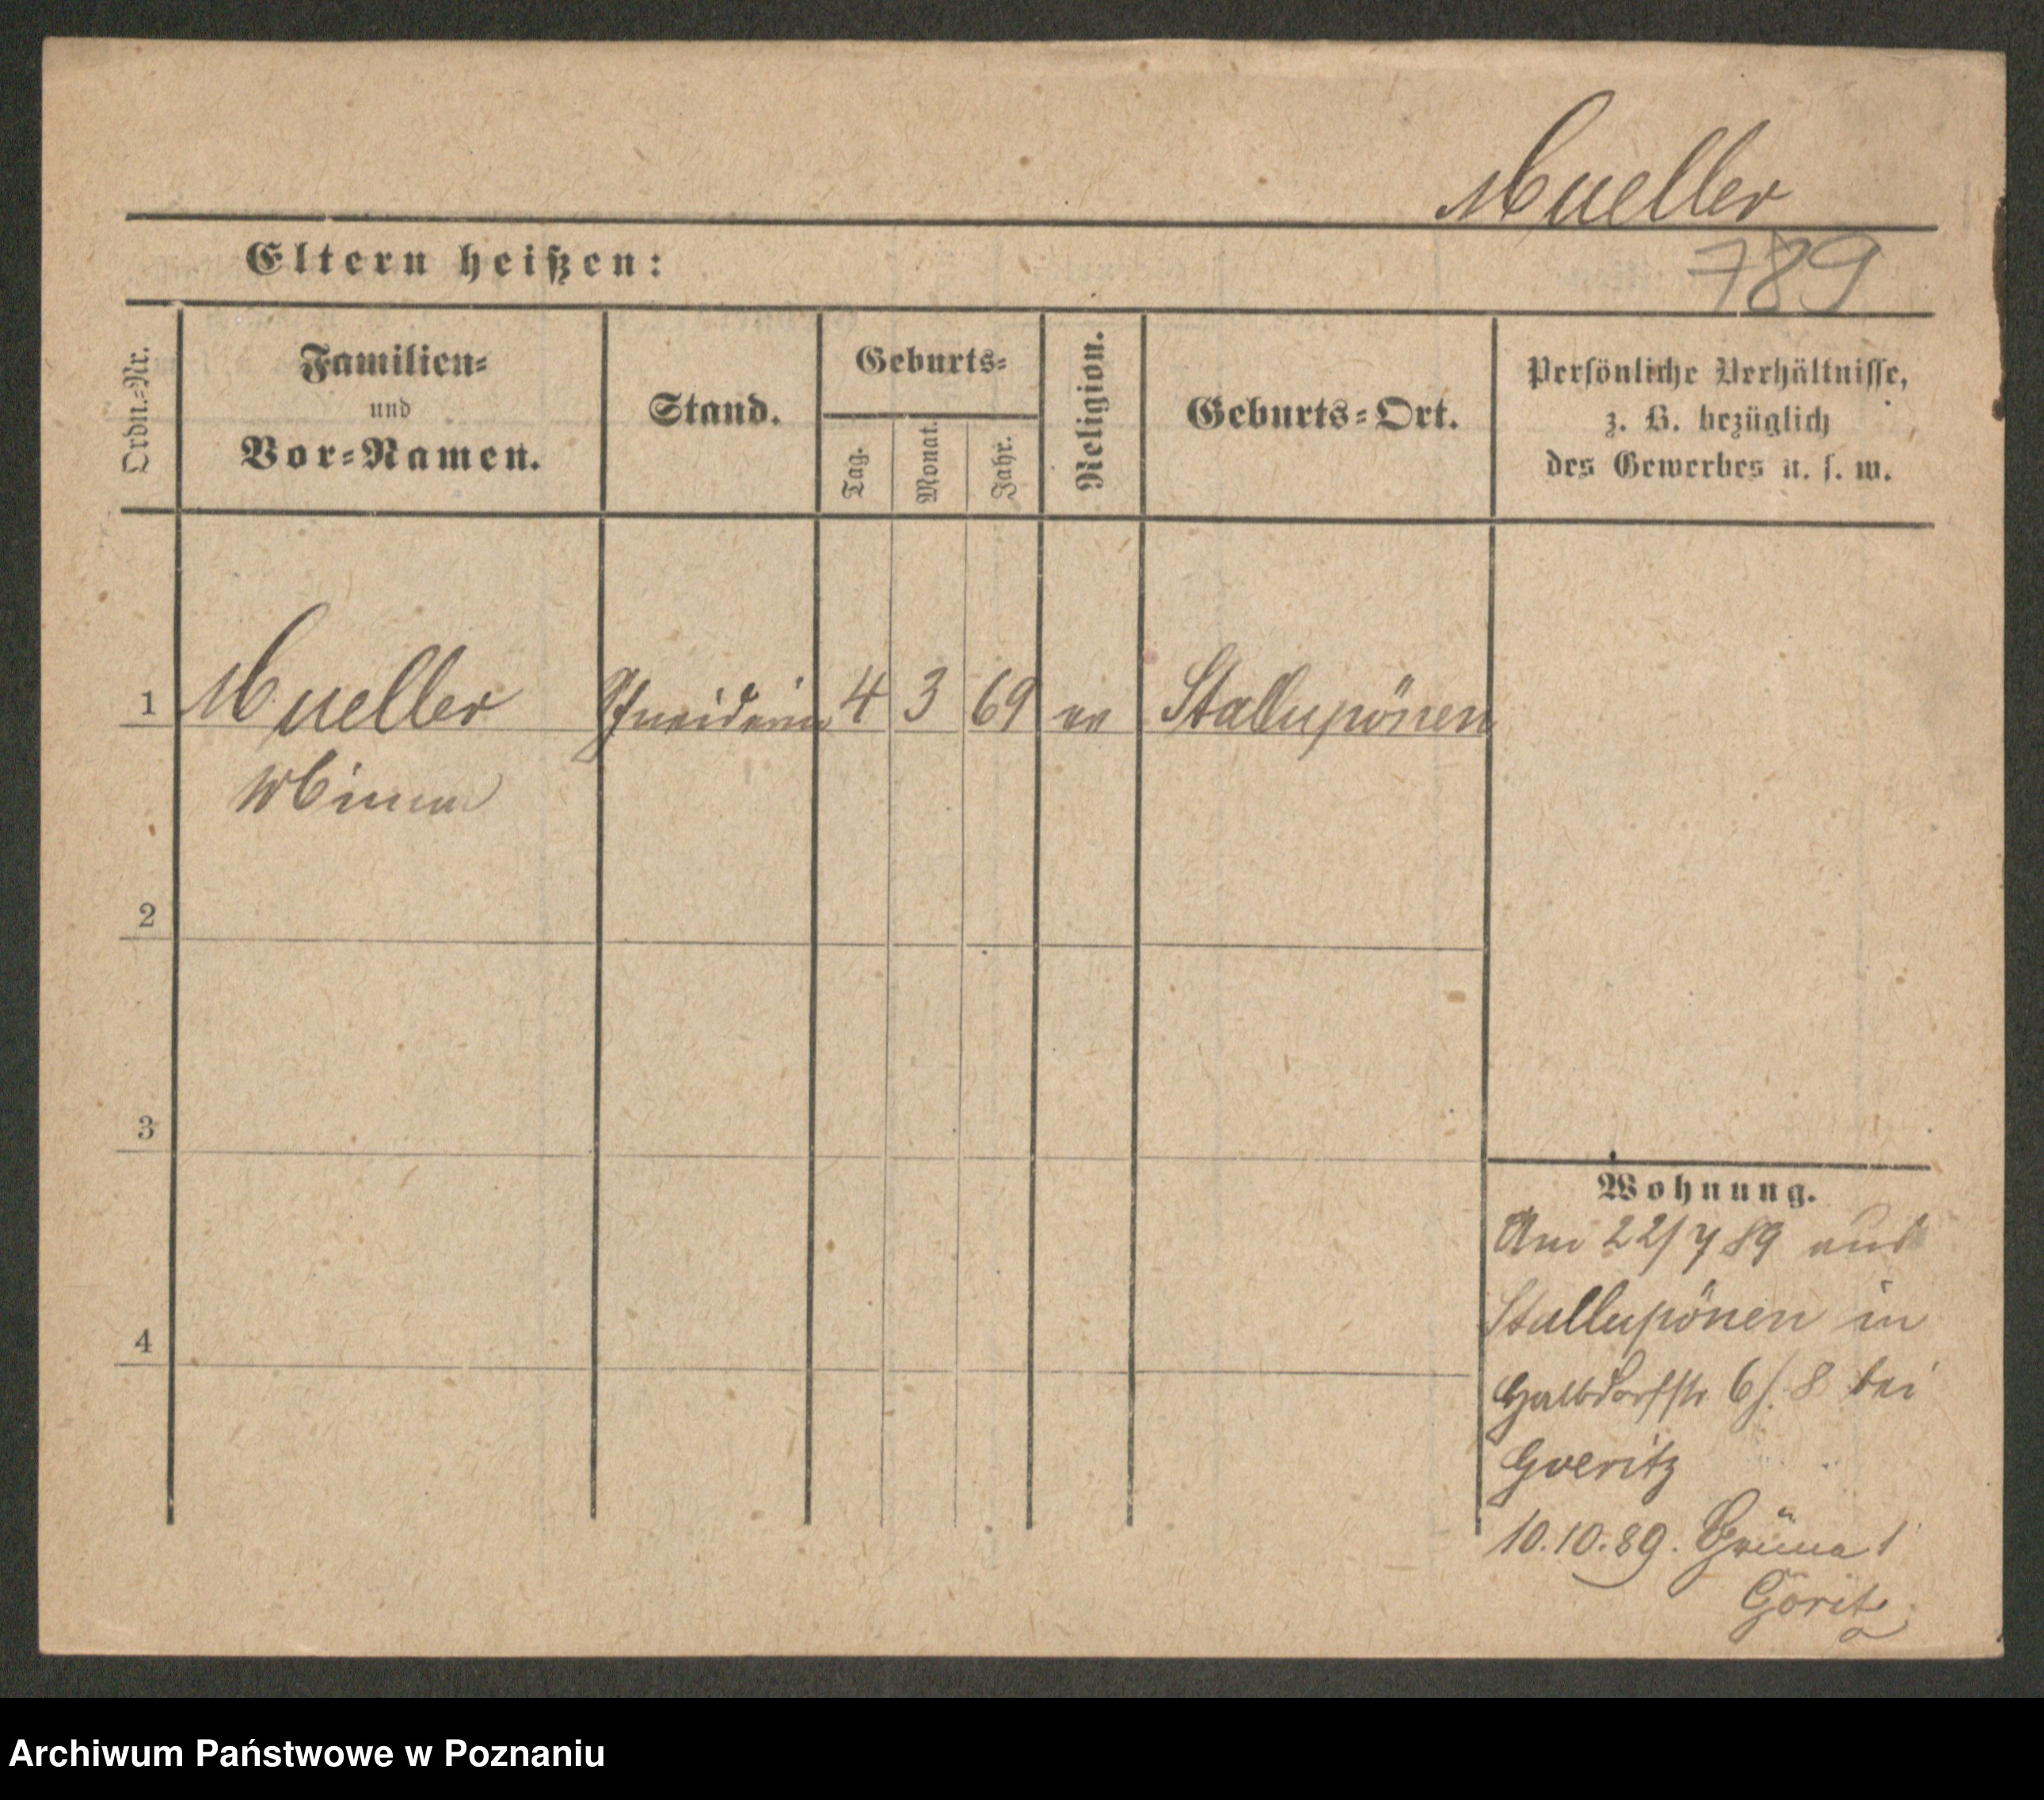 Mueller
789
Eltern heißen:
Ordn.-Nr.
Familien-
und
Vor-Namen.
Stand.
Geburts-
Tag.
Monat.
Jahr.
Religion.
Geburts-Ort.
Persönliche Verhältnisse,
z. B. bezüglich
des Gewerbes u. s. w.
1 Mueller Schneiderin 4 3 69 ev Stallupönen
Minna
2
3
4
Wohnung.
Am 22/7 89 aus
Stallupönen in
Halbdorfstr 6/. 8 bei
Goeritz
10.10.89. Grüna 1
Göritz
Archiwum Państwowe w Poznaniu